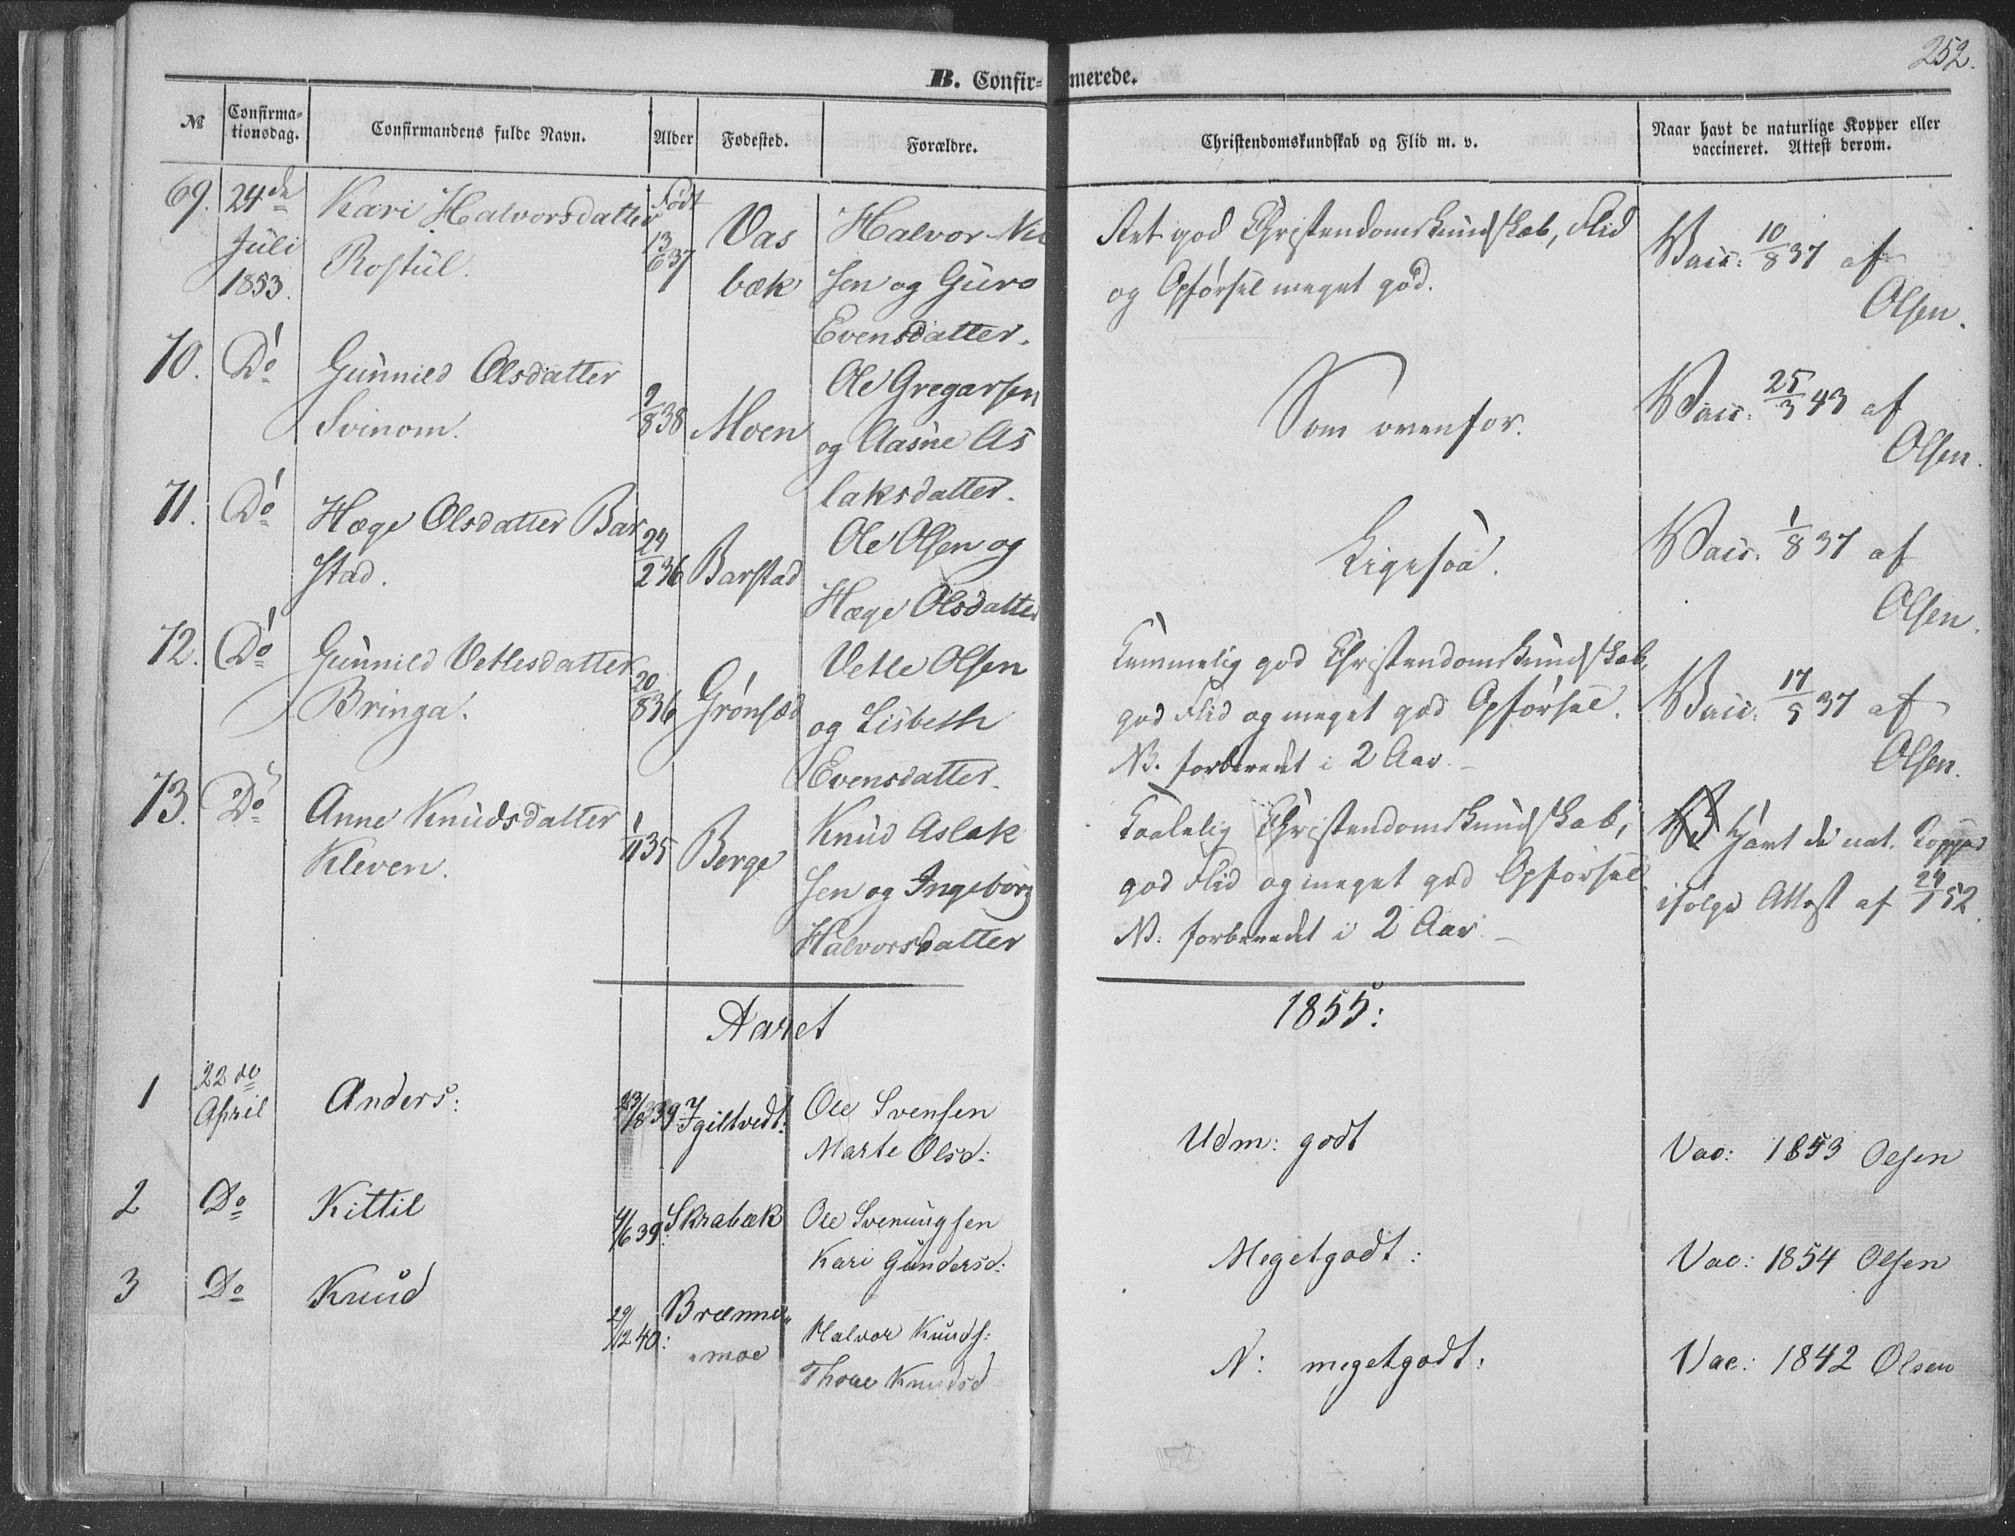 252.
B. Confirmerede.
№ Confirmationsdag. Confirmandens fulde Navn. Alder Fødested. Forældre. Christendomskundskab og Flid m. v. Naar havt de naturlige Kopper eller vaccineret. Attest derom.
69. 24de Kari Halvorsdatter Født Vas Halvor Ni Ret god Christendomskundskab, Flid Vacc: 10/8 37 af
Juli Rostul. 13/6 37 bæk sen og Guro og Opførsel meget god. Olsen.
1853. Evensdatter.
70. Do Gunnild Olsdatter 9/8 38 Moen Ole Gregarsen Som ovenfor. Vacc: 25/3 43 af
Svinom. og Aasne As Olsen.
laksdatter.
71. Do Hæge Olsdatter Bar 24/2 36 Barstad Ole Olsen og Ligesaa. Vacc: 1/8 37 af
stad. Hæge Olsdatter Olsen.
72. Do Gunnild Vetlesdatter 20/8 36 Grønsæd Vetle Olsen Temmelig god Christendomskundskab, Vacc: 17/5 37 af
Bringa. og Lisbeth god Flid og meget god Opførsel. Olsen.
Evensdatter. NB. forberedet i 2 Aar.
73. Do Anne Knudsdatter 1/11 35 Berge Knud Aslak Taalelig Christendomskundskab, Havt de nat. Kopper
Kleven. sen og Ingeborg god Flid og meget god Opførsel ifølge Attest af 24/7 52.
Halvorsdatter NB: forberedet i 2 Aar.
Aaret 1855:
1 22de Anders: 23/8 39 Igiltvedt: Ole Svensen Udm: godt Vac: 1853 Olsen
April Marte Olsd:
2 Do Kittil 4/6 39: Skrabæk Ole Svenungsen Megetgodt: Vac: 1854 Olsen
Kari Gundersd:
3 Do Knud 29/12 40: Brænne„ Halvor Knuds: N: megetgodt: Vac: 1842 Olsen
„moe Thone Knudsd